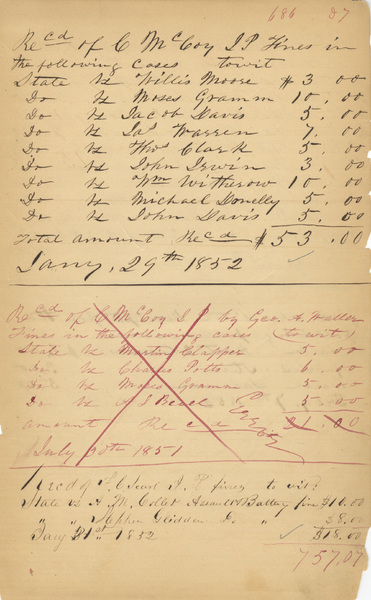 686 87
Recd of C McCoy J P Fines in
the following cases towit
State vs Willis Moore $3.00
Do vs Moses Gramm 10.00
Do vs Jacob Davis 5.00
Do vs Jas Warren 7.00
Do vs Thos Clark 5.00
Do vs John Irwin 3.00
Do vs Wm Witherow 10.00
Do vs Michael Donelly 5.00
Do vs John Davis 5.00
Total amount Recd $53.00
Jany, 29th 1852
Recd of C McCoy J P by Geo. A. Waller
Fines in the following cases (to wit)
State vs Martin Clapper 5.00
Do vs Charles Potts 6.00
Do vs Moses Gramm 5.00
Do vs A J Beach 5.00
amount Recd 21.00
Error
July 20th 1851
Recd of J. P. fines to wit:
State vs A. M. Collet Assault & Battery fine $10.00
" " Stephen Do " 8.00
Jany 31st 1852 $18.00
757.07